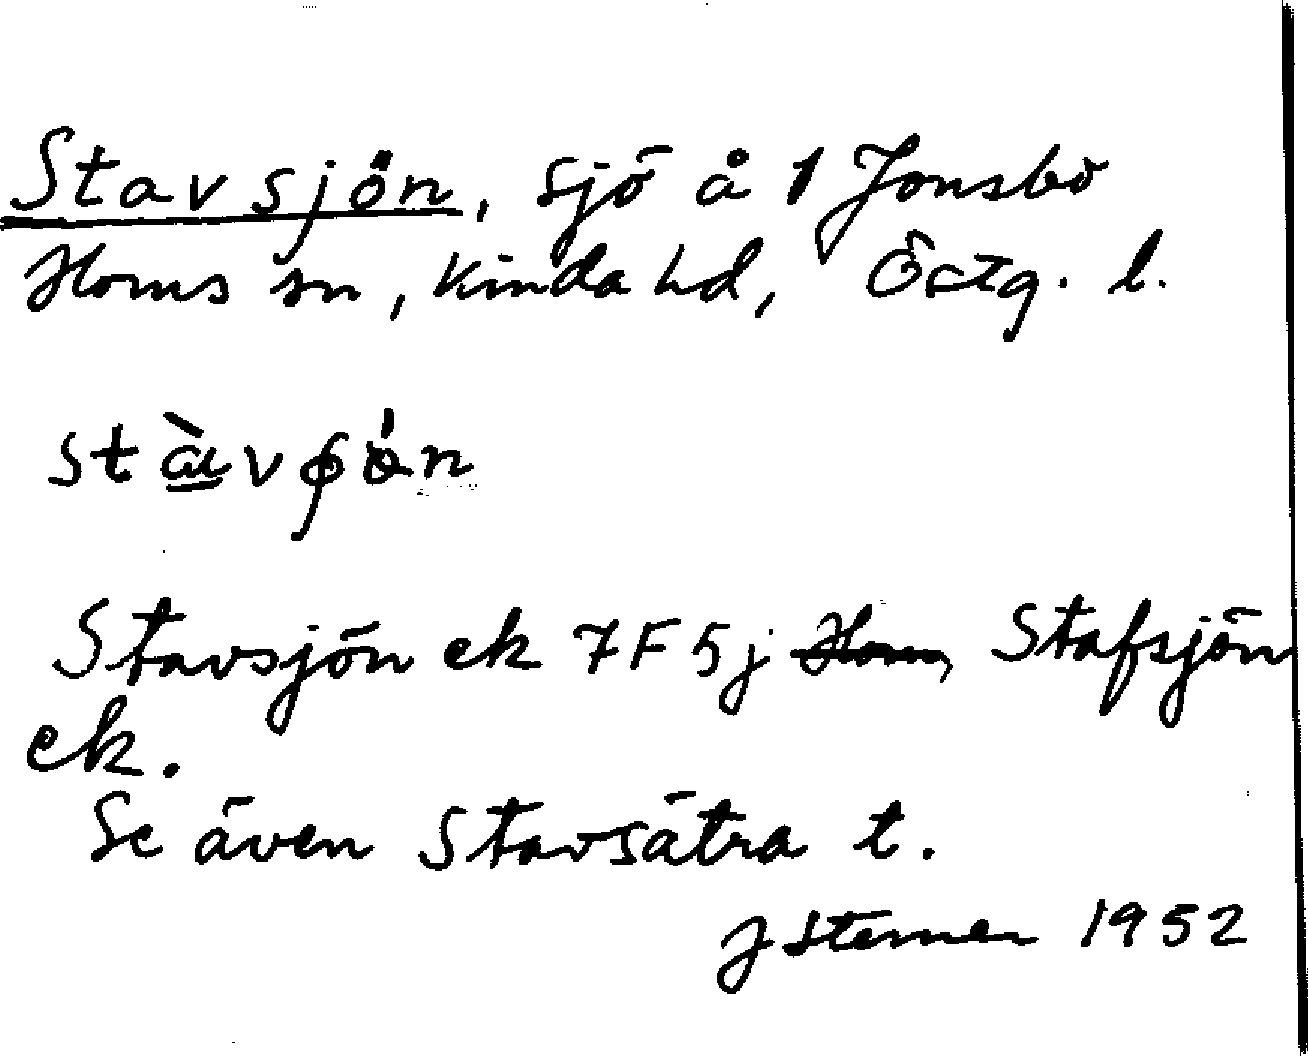 Stavsjön, sjö å 1 Jonsbo
Horns sn, Kinda hd, Östg. l.
Stavsjön ek 7F5j Horn, Stafsjön
ek.
Se även Stavsätra t.
J Sterner 1952